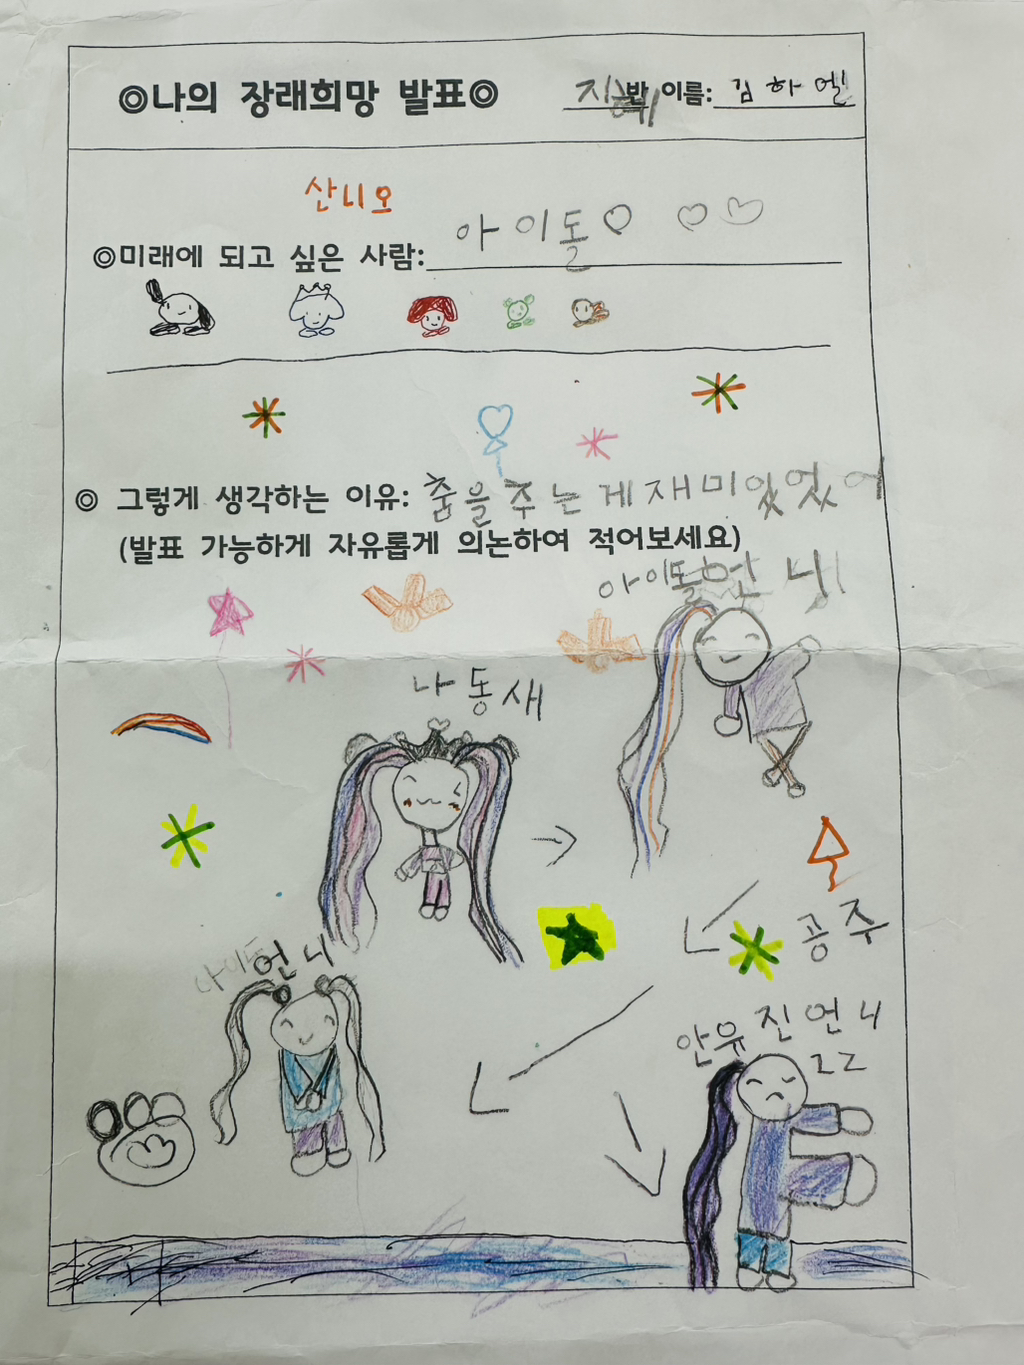 ◎나의 장래희망 발표◎
지혜반 이름: 김하엘
산니오
◎미래에 되고 싶은 사람: 아이돌
◎ 그렇게 생각하는 이유: 춤을 추는 게 재미있었어
(발표 가능하게 자유롭게 의논하여 적어보세요)
아이돌언니
나 동새
공주
아이돌 언니
안유진언니
ㄹㄹ